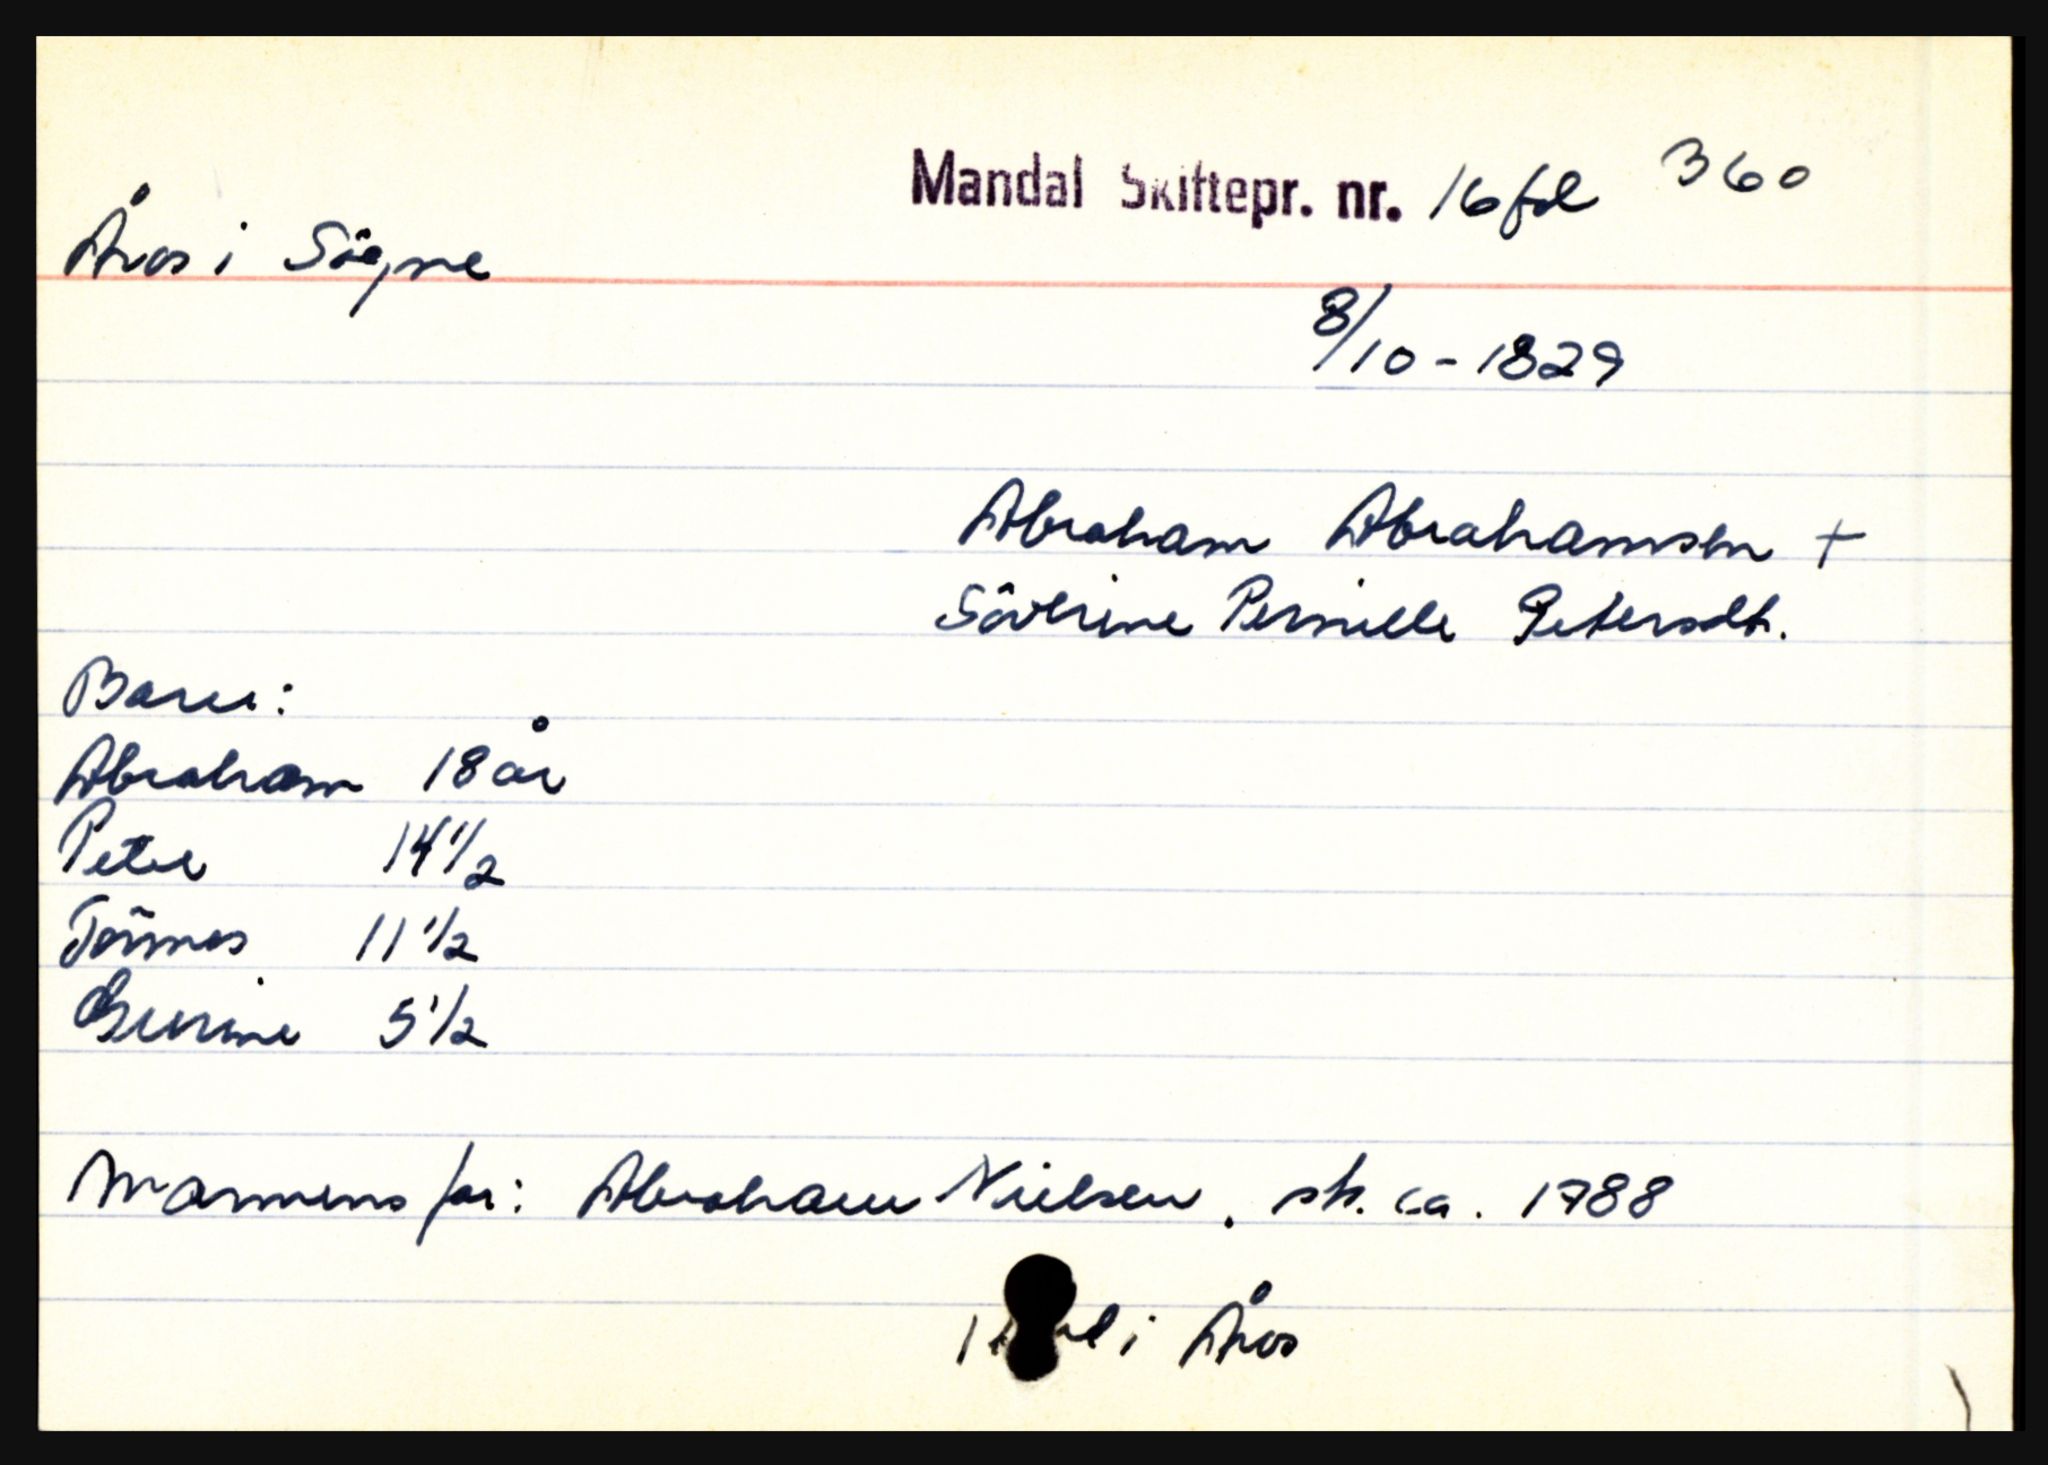 Mandal Skiftepr. nr. 16 fol 360
Åros i Sögne
8/10 - 1829
Abraham Abrahamsen +
Söverine Pernille Petersdt.
Barn:
Abraham 18 år
Peter 14 1/2
Tönnes 11 1/2
Gurine 5 1/2
Mannens far: Abraham Nielsen. sk. ca. 1788
i Åros